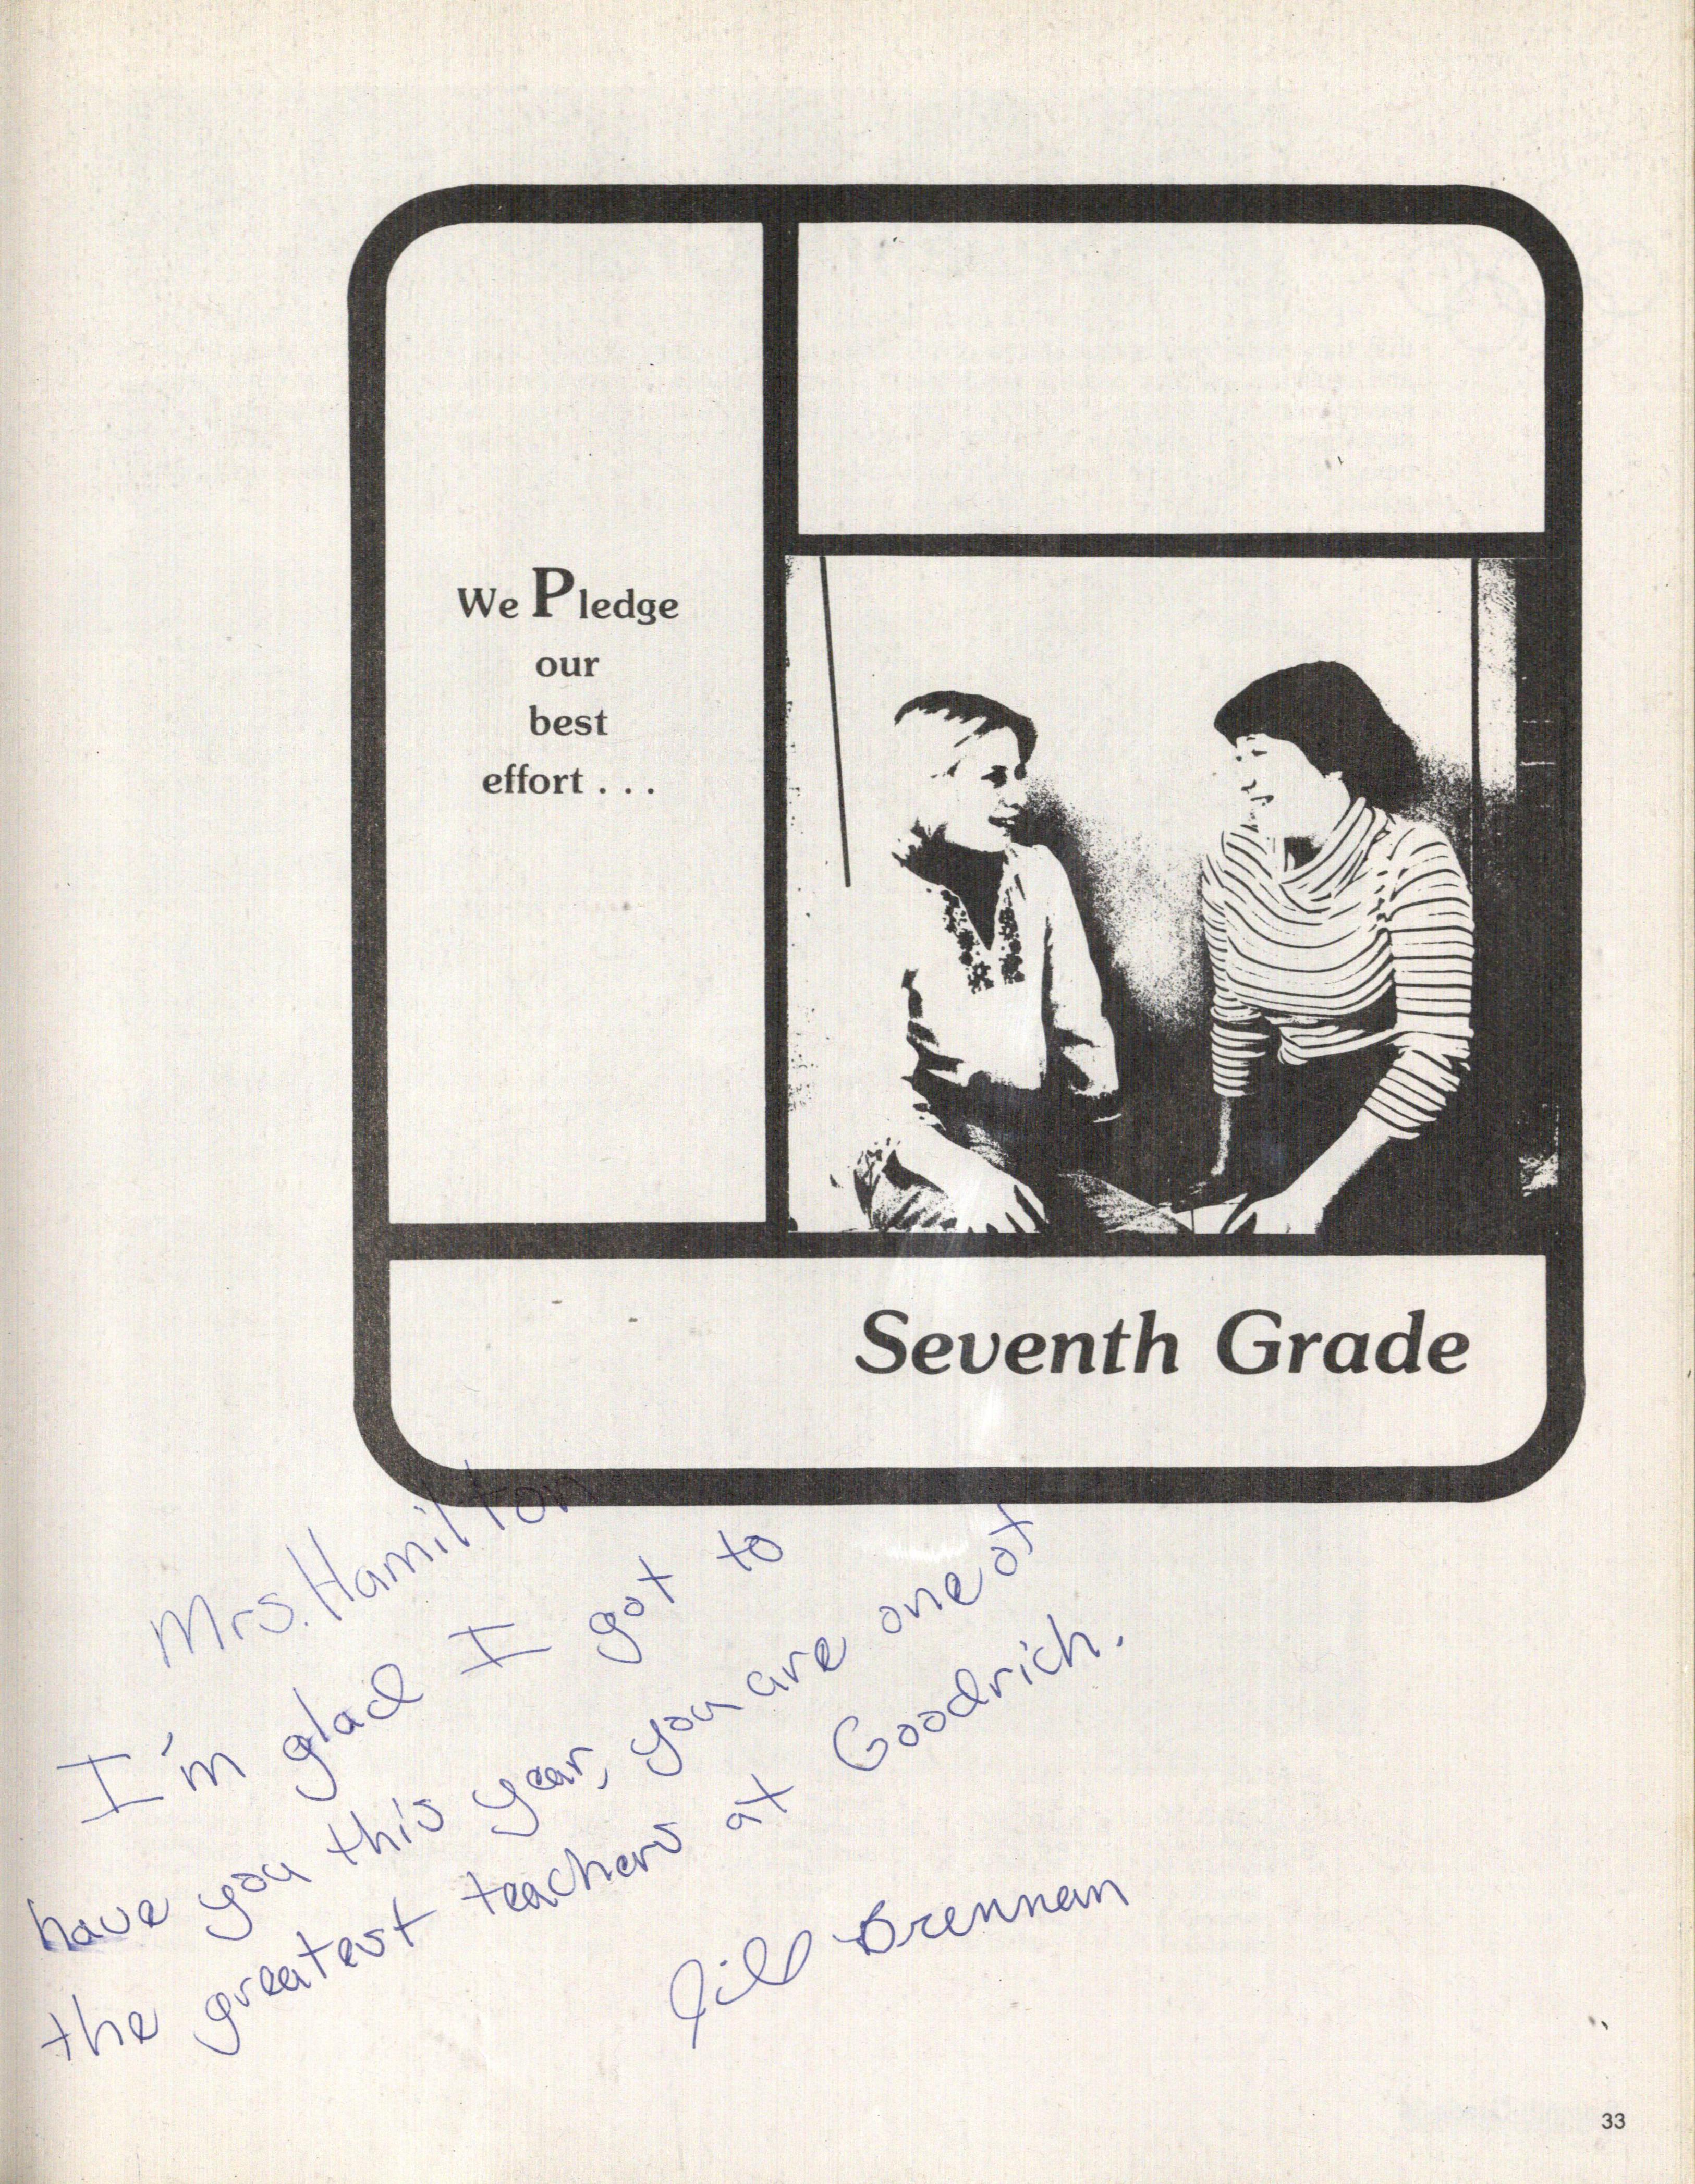 We Pledge
our
best
effort . . .
Seventh Grade
Mrs. Hamilton
I'm glad I got to
have you this year, you are one of
the greatest teachers at Goodrich.
Jill Brennan
33